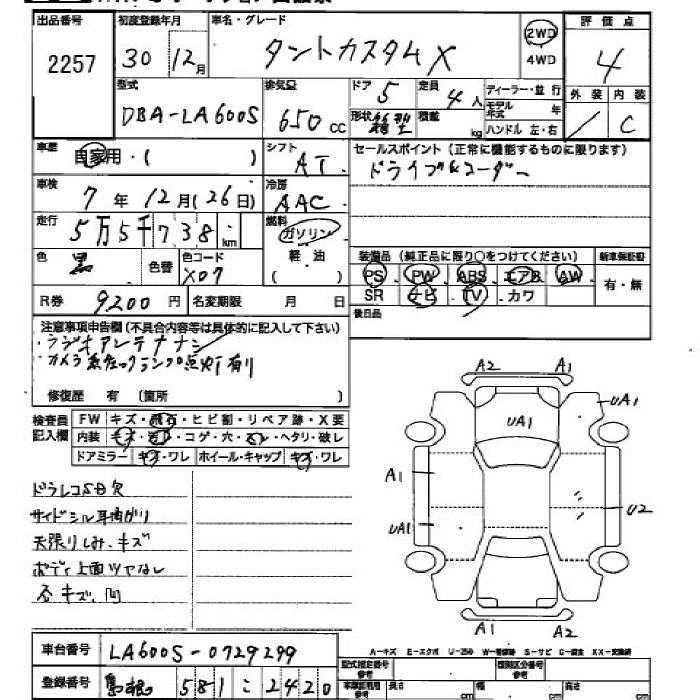 出品番号 初度登録年月 車名・グレード 評価点
2257 30 12月 タントカスタムX 2WD 4WD 4
型式 排気量 ドア 定員 ディーラー・並行 外装 内装
DBA-LA600S 650cc 5 4人 モデル年式 年 / C
形状 箱型 積載 kg ハンドル 左・右
車歴 自家用・( ) シフト AT セールスポイント(正常に機能するものに限ります)
ドライブレコーダー
車検 7年12月(26日) 冷房 AAC
走行 5万5千738km 燃料 ガソリン
軽油
( )
色 黒 色替 色コード X07
装備品(純正品に限り○をつけてください) 新車保証書
PS PW ABS エアB AW 有・無
SR ナビ TV カワ
R券 9200円 名変期限 月 日 後日品
注意事項申告欄(不具合内容等は具体的に記入して下さい)
ラジオアンテナナシ
ランプ点灯有り
修復歴 有 〔箇所 〕
検査員記入欄 FW キズ・飛石・ヒビ割・リペア跡・X要
内装 キズ・汚レ・コゲ・穴・スレ・ヘタリ・破レ
ドアミラー キズ・ワレ ホイール・キャップ キズ・ワレ
ドラレコSD欠
サイドシル耳曲がり
天張りしみ、キズ
ボディ上面ツヤなし
各キズ、凹
A2 A1
UA1
UA1
A1
U2
UA1
A1 A2
車台番号 LA600S-0729299
A-キズ E-エクボ U-凹み W-補修跡 S-サビ C-腐食 XX-交換済
登録番号 島根 581 こ 2420
型式指定番号 参考 類別区分番号 参考
車検証利用 参考 長さ cm 幅 cm 高さ cm